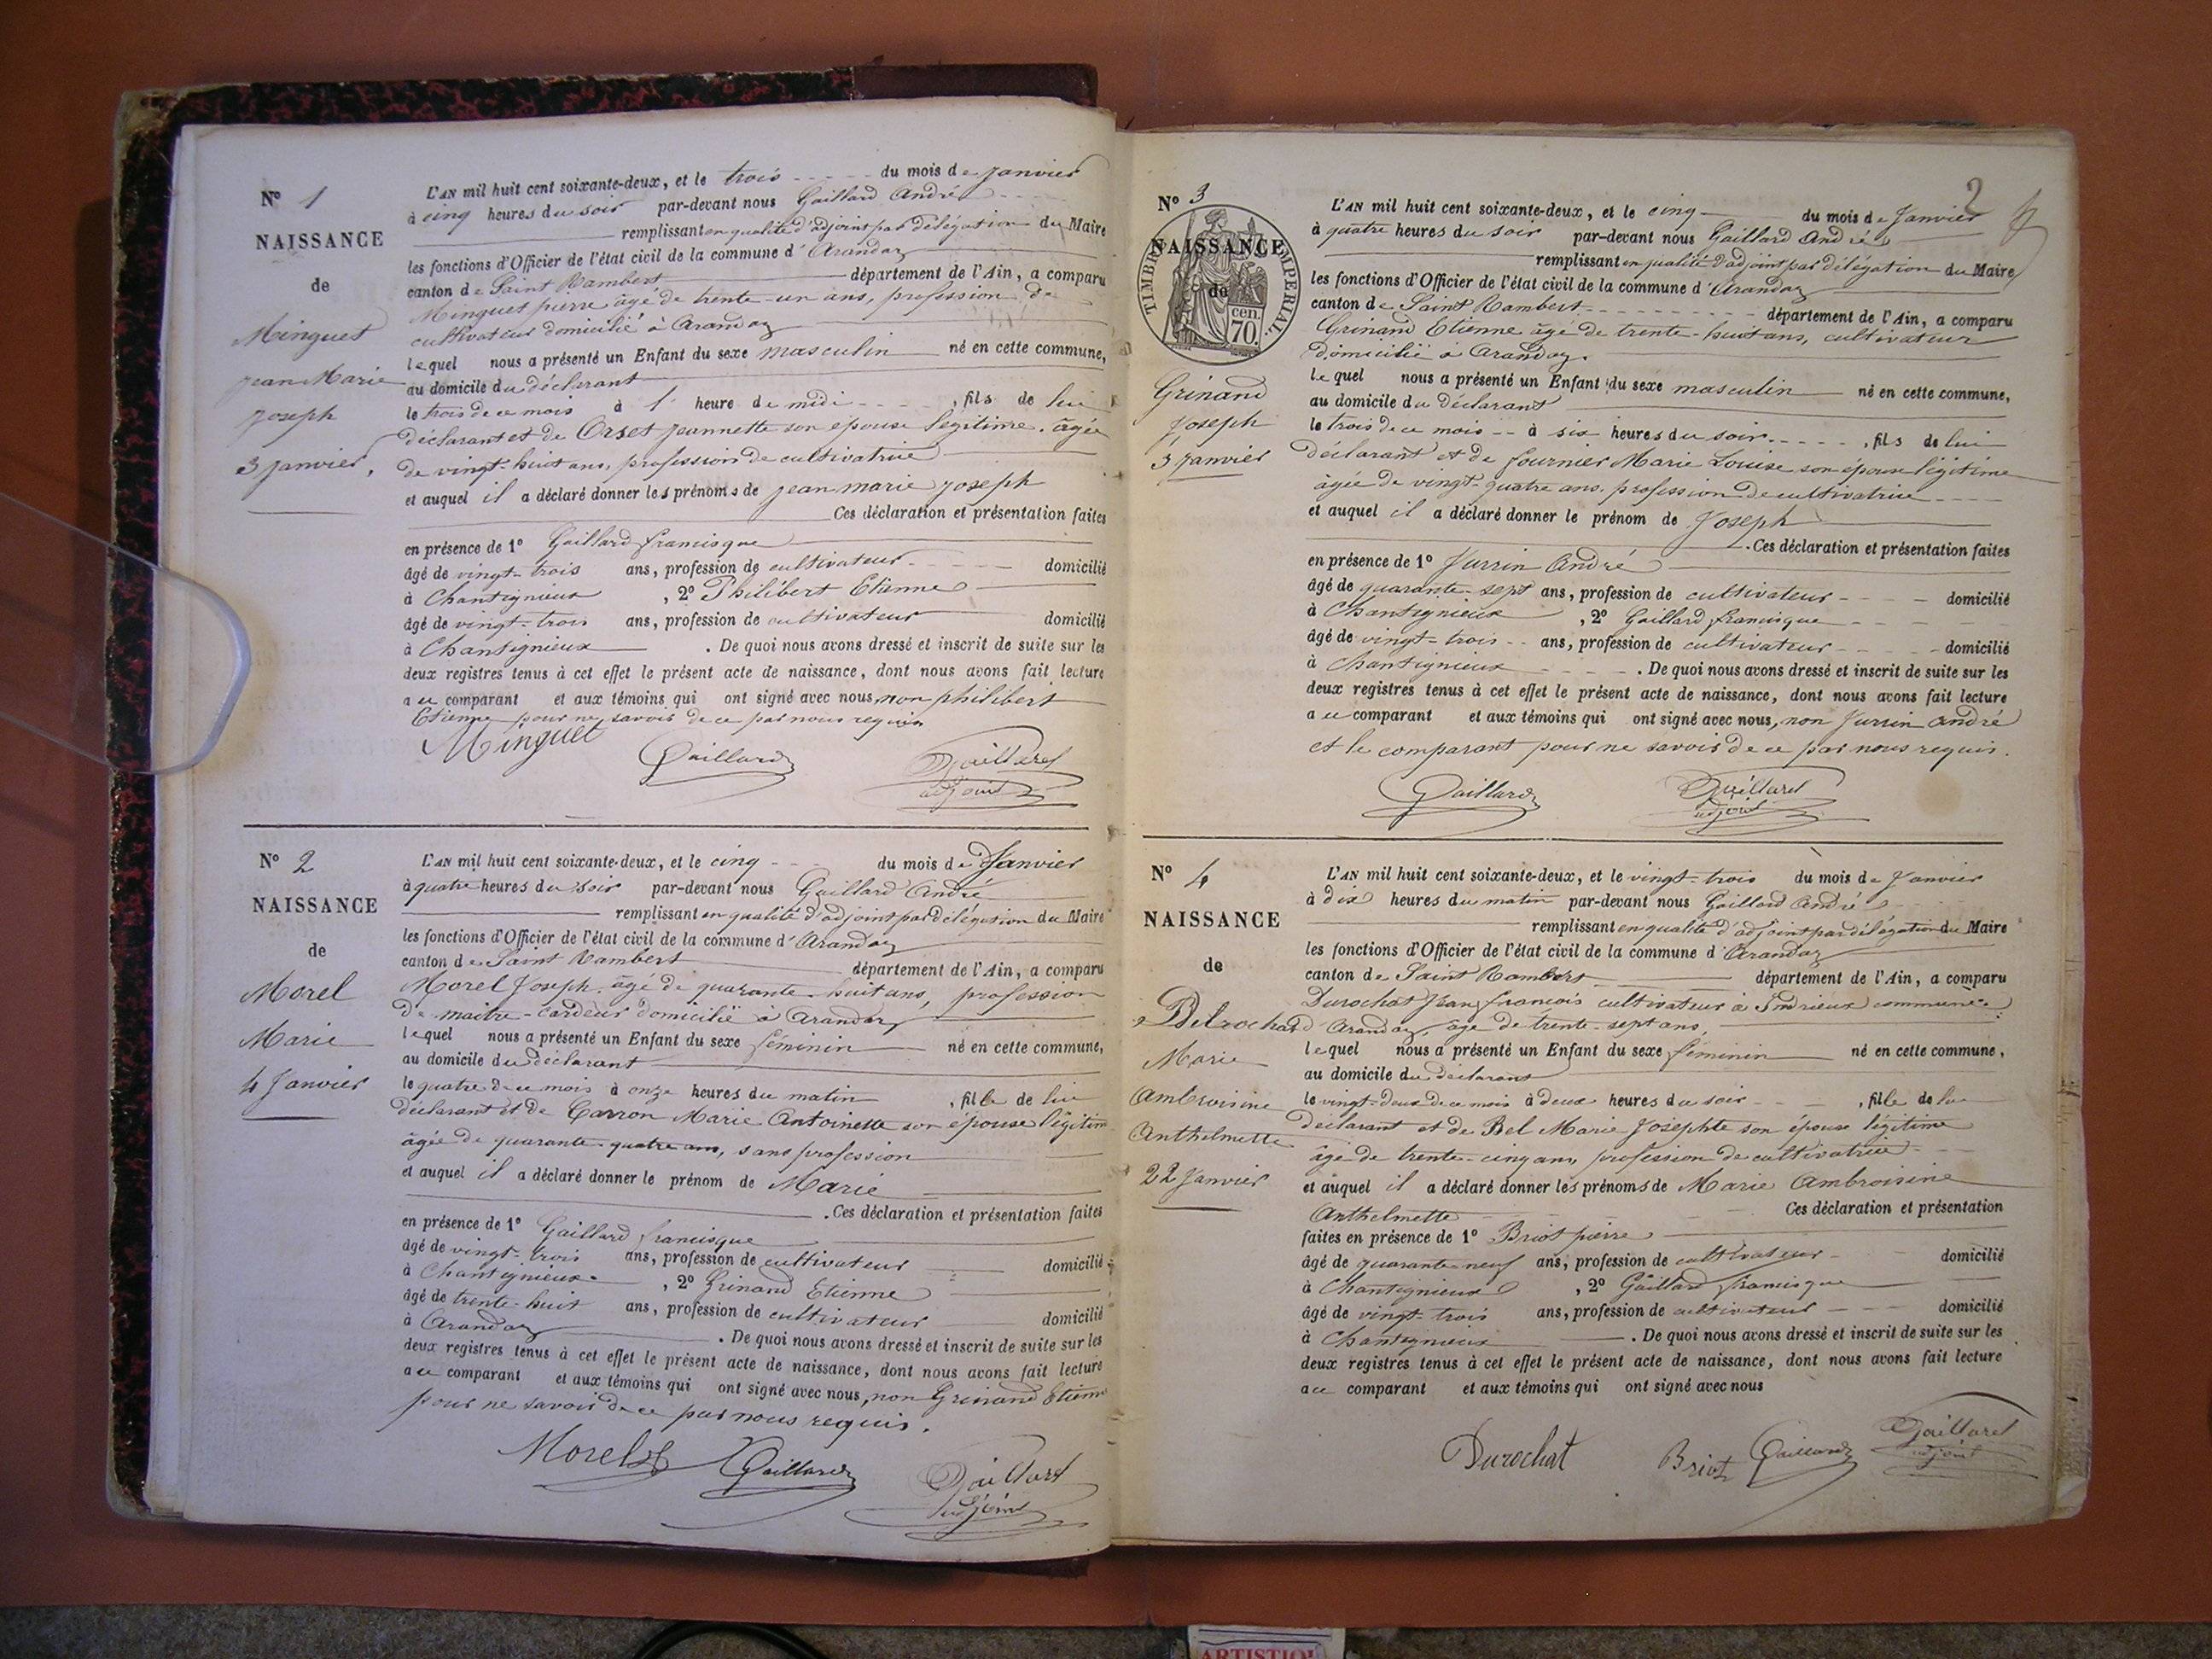 N° 1
NAISSANCE
de
Minguet
Jean Marie
Joseph
3 Janvier,
L'AN mil huit cent soixante-deux, et le trois du mois de Janvier
à cinq heures du soir par-devant nous Gaillard André
remplissant en qualité d'adjoint par délégation du Maire
les fonctions d'Officier de l'état civil de la commune d'Arandaz
canton de Saint Rambert département de l'Ain, a comparu
Minguet pierre âgé de trente-un ans, profession de
cultivateur domicilié à Arandaz
lequel nous a présenté un Enfant du sexe masculin né en cette commune,
au domicile du déclarant
le trois de ce mois à 1 heure de midi, fils de lui
déclarant et de Orset Jeannette son épouse légitime. âgée
de vingt-huit ans, profession de cultivatrice
et auquel il a déclaré donner les prénoms de jean marie joseph
Ces déclaration et présentation faites
en présence de 1° Gaillard francisque
âgé de vingt-trois ans, profession de cultivateur domicilié
à Chantignieux, 2° Philibert Etienne
âgé de vingt-trois ans, profession de cultivateur domicilié
à Chantignieux. De quoi nous avons dressé et inscrit de suite sur les
deux registres tenus à cet effet le présent acte de naissance, dont nous avons fait lecture
au comparant et aux témoins qui ont signé avec nous, non philibert
Etienne pour ne savoir de ce par nous requis
Minguet Gaillard Gaillard
adjoint
N° 2
NAISSANCE
de
Morel
Marie
4 Janvier
L'AN mil huit cent soixante-deux, et le cinq du mois de Janvier
à quatre heures du soir par-devant nous Gaillard André
remplissant en qualité d'adjoint par délégation du Maire
les fonctions d'Officier de l'état civil de la commune d'Arandaz
canton de Saint Rambert département de l'Ain, a comparu
Morel Joseph, âgé de quarante-huit ans, profession
de maitre-cardeur domicilié à Arandaz
lequel nous a présenté un Enfant du sexe féminin né en cette commune,
au domicile du déclarant
le quatre de ce mois à onze heures du matin, fille de lui
déclarant et de Carron Marie Antoinette son épouse légitime
âgée de quarante-quatre ans, sans profession
et auquel il a déclaré donner le prénom de Marie
. Ces déclaration et présentation faites
en présence de 1° Gaillard francisque
âgé de vingt-trois ans, profession de cultivateur domicilié
à Chantignieux, 2° Grinand Etienne
âgé de trente-huit ans, profession de cultivateur domicilié
à Arandaz. De quoi nous avons dressé et inscrit de suite sur les
deux registres tenus à cet effet le présent acte de naissance, dont nous avons fait lecture
au comparant et aux témoins qui ont signé avec nous, non Grinand Etienne
pour ne savoir de ce par nous requis.
Morel Gaillard Gaillard
adjoint
2
N° 3
NAISSANCE
de
TIMBRE IMPERIAL
70 cen.
Grinand
Joseph
3 Janvier
L'AN mil huit cent soixante-deux, et le cinq du mois de Janvier
à quatre heures du soir par-devant nous Gaillard André
remplissant en qualité d'adjoint par délégation du Maire
les fonctions d'Officier de l'état civil de la commune d'Arandaz
canton de Saint Rambert département de l'Ain, a comparu
Grinand Etienne âgé de trente-huit ans, cultivateur
domicilié à Arandaz.
lequel nous a présenté un Enfant du sexe masculin né en cette commune,
au domicile du déclarant
le trois de ce mois à six heures du soir, fils de lui
déclarant et de fournier Marie Louise son épouse légitime
âgée de vingt-quatre ans. profession de cultivatrice
et auquel il a déclaré donner le prénom de Joseph
. Ces déclaration et présentation faites
en présence de 1° Jurrin André
âgé de quarante-sept ans, profession de cultivateur domicilié
à Chantignieux, 2° Gaillard francisque
âgé de vingt-trois ans, profession de cultivateur domicilié
à Chantignieux. De quoi nous avons dressé et inscrit de suite sur les
deux registres tenus à cet effet le présent acte de naissance, dont nous avons fait lecture
au comparant et aux témoins qui ont signé avec nous, non Jurrin André
et le comparant pour ne savoir de ce par nous requis.
Gaillard Gaillard
adjoint
N° 4
NAISSANCE
de
Marie
Ambroisine
Anthelmette
22 Janvier
L'AN mil huit cent soixante-deux, et le vingt-trois du mois de Janvier
à dix heures du matin par-devant nous Gaillard André
remplissant en qualité d'adjoint par délégation du Maire
les fonctions d'Officier de l'état civil de la commune d'Arandaz
canton de Saint Rambert département de l'Ain, a comparu
Durochat Jean françois cultivateur à Indrieux commune
Arandaz, âgé de trente-sept ans,
lequel nous a présenté un Enfant du sexe féminin né en cette commune,
au domicile du déclarant
le vingt-deux de ce mois à deux heures du soir, fille de lui
déclarant et de Bel Marie Josephte son épouse légitime
âgé de trente-cinq ans, profession de cultivatrice
et auquel il a déclaré donner les prénoms de Marie Ambroisine
Anthelmette Ces déclaration et présentation
faites en présence de 1° Briot pierre
âgé de quarante-neuf ans, profession de cultivateur domicilié
à Chantignieux, 2° Gaillard francisque
âgé de vingt-trois ans, profession de cultivateur domicilié
à Chantignieux. De quoi nous avons dressé et inscrit de suite sur les
deux registres tenus à cet effet le présent acte de naissance, dont nous avons fait lecture
au comparant et aux témoins qui ont signé avec nous
Durochat Briot Gaillard Gaillard
adjoint